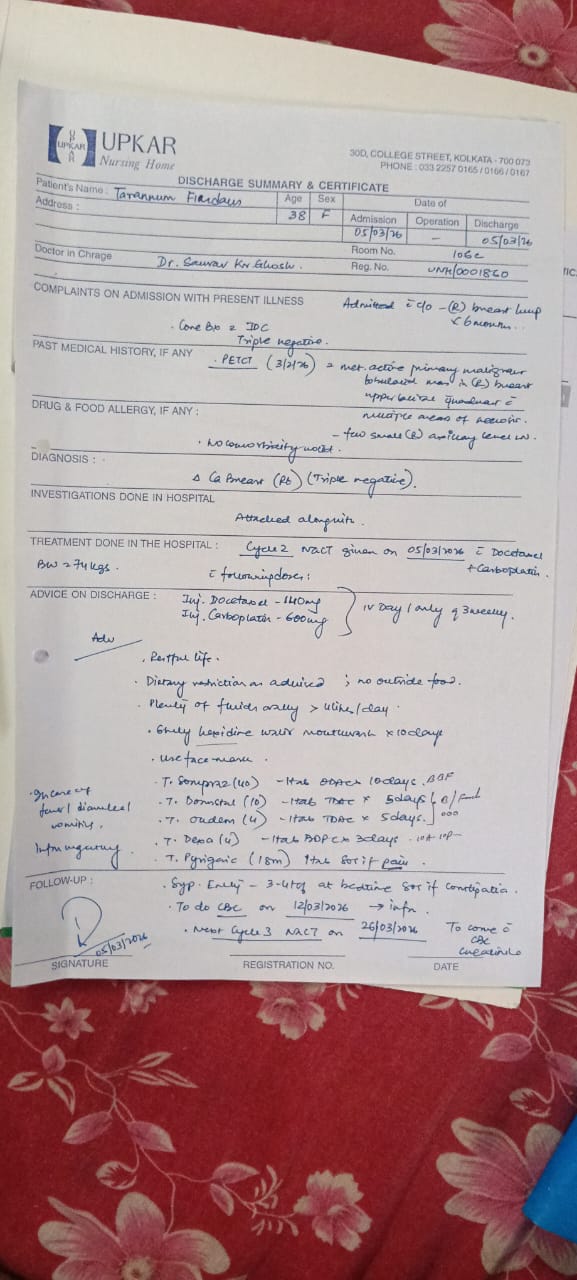 UPKAR
UPKAR
Nursing Home
30D, COLLEGE STREET, KOLKATA - 700 073
PHONE : 033 2257 0165 / 0166 / 0167
DISCHARGE SUMMARY & CERTIFICATE
Patient's Name : Tarannum Firdaus
Age Sex
38 F
Date of
Address :
Admission Operation Discharge
05/03/26 - 05/03/26
Room No. 106c
Doctor in Chrage Dr. Saurav Kr Ghosh.
Reg. No. UNH/0001860
COMPLAINTS ON ADMISSION WITH PRESENT ILLNESS
Admitted c̄ c/o - (R) breast lump
< 6 months.
. Core Bx IDC
Triple negative.
PAST MEDICAL HISTORY, IF ANY
. PETCT (3/2/26) met. active primary malignant
lobulated mass in (R) breast
upper outer quadrant c̄
multiple areas of necrosis.
DRUG & FOOD ALLERGY, IF ANY :
- few small (R) axillary level
. No comorbidity noted.
DIAGNOSIS :
Δ Ca Breast (Rt) (Triple negative).
INVESTIGATIONS DONE IN HOSPITAL
Attached alongwith.
TREATMENT DONE IN THE HOSPITAL : Cycle 2 NACT given on 05/03/2026 c̄ Docetaxel
+ Carboplatin.
BW 74 kgs. c̄ following doses :
ADVICE ON DISCHARGE :
Inj. Docetaxel - 140mg
Inj. Carboplatin - 600mg
IV Day 1 only q 3 weekly.
Adv
. Restful life.
. Dietary restriction as advised ; no outside food.
. Plenty of fluids orally > 4 litres/day.
. hexidine water mouthwash x 10 days
. use face mask.
. T. Sompraz (40) - 1tab ODAC x 10 days. BBF
. T. Domstal (10) - 1tab TDAC x 5 days
. T. Ondem (4) - 1tab TDAC x 5 days.
. T. Dexa (4) - 1tab BDPC x 3 days.
. T. Pyrigesic (1gm) 1tab SOS if pain.
. In case of
fever / diarrhoea /
vomiting,
Inform urgently.
FOLLOW-UP :
. Syp. - 3-4tsf at bedtime SOS if constipation.
. To do CBC on 12/03/2026 → infm.
. Next Cycle 3 NACT on 26/03/2026
To come c̄
CBC
Creatinine
05/03/2026
SIGNATURE
REGISTRATION NO.
DATE